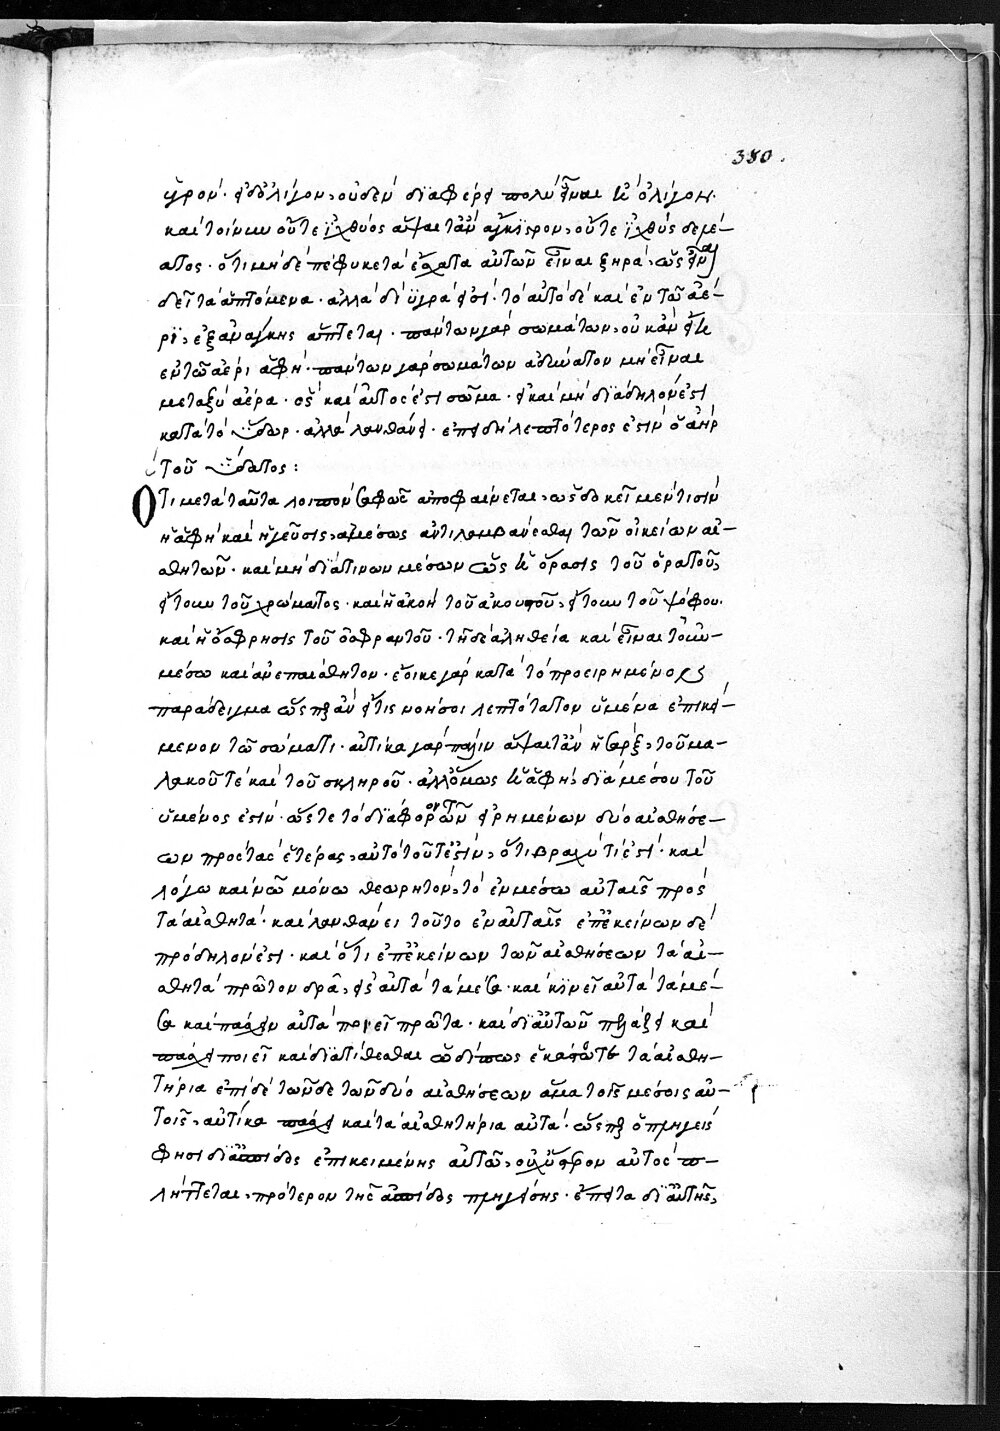 380.
ὑγρόν· εἰ δ' ὀλίγον, οὐδὲν διαφέρει πολὺ εἶναι ἢ ὀλίγον.
καὶ τοίνυν οὔτε ἰχθύος ἅψαιτ' ἂν ἄγκιστρον, οὔτε ἰχθὺς δελέ-
ατος· ὅτι μὴ δὲ πέφυκε τὰ ἔσχατα αὐτῶν εἶναι ξηρὰ, ὡς εἶναι
δεῖ τὰ ἁπτόμενα· ἀλλὰ δίυγρά εἰσι· τὸ αὐτὸ δὲ καὶ ἐν τῷ ἀέ-
ρι, ἐξανάγκης ἅπτεται· πάντων γὰρ σωμάτων, οὐκ ἂν εἴη
ἐν τῷ ἀέρι ἁφή· πάντων γὰρ σωμάτων ἀδύνατον μὴ εἶναι
μεταξὺ ἀέρα· ὃς καὶ αὐτός ἐστι σῶμα· εἰ καὶ μὴ διάδηλόν ἐστι
κατὰ τὸ ὕδωρ· ἀλλὰ λανθάνει· ἐπειδὴ λεπτότερος ἐστὶν ὁ ἀὴρ
τοῦ ὕδατος:
Ὅτι μετὰ ταῦτα λοιπὸν σαφῶς ἀποφαίνεται, ὡς δοκεῖ μέν τισιν
ἡ ἁφὴ καὶ ἡ γεῦσις, ἀμέσως ἀντιλαμβάνεσθαι τῶν οἰκείων αἰ-
σθητῶν· καὶ μὴ διά τινων μέσων ὡς ἡ ὅρασις τοῦ ὁρατοῦ,
ἤτουν τοῦ χρώματος· καὶ ἡ ἀκοὴ τοῦ ἀκουστοῦ, ἤτουν τοῦ ψόφου.
καὶ ἡ ὄσφρησις τοῦ ὀσφραντοῦ· τῇ δὲ ἀληθείᾳ καὶ εἶναι
μέσῳ καὶ ἀνεπαίσθητον· ἔοικε γὰρ κατὰ τὸ προειρημένον
παράδειγμα ὥσπερ ἂν εἴ τις νοήσοι λεπτότατον ὑμένα ἐπικεί-
μενον τῷ σώματι· αὐτίκα γὰρ πάλιν ἅψαιτ' ἂν ἡ σὰρξ, τοῦ μα-
λακοῦ τὲ καὶ τοῦ σκληροῦ· ἀλλ' ὅμως ἡ ἁφὴ, διὰ μέσου τοῦ
ὑμένος ἐστίν· ὥστε τὸ διάφορον τῶν εἰρημένων δύο αἰσθήσε-
ων πρὸς τὰς ἑτέρας, αὐτὸ τοῦτ' ἔστιν, ὅτι βραχύ τί ἐστι· καὶ
λόγῳ καὶ νῷ μόνῳ θεωρητὸν, τὸ ἐν μέσῳ αὐταῖς πρὸς
τὰ αἰσθητά· καὶ λανθάνει τοῦτο ἐν αὐταῖς ἐπ' ἐκείνων δὲ
πρόδηλόν ἐστι· καὶ ὅτι ἐπ' ἐκείνων τῶν αἰσθήσεων τὰ αἰ-
σθητὰ πρῶτον δρᾷ, εἰς αὐτὰ τὰ μέσα· καὶ κινεῖ αὐτὰ τὰ μέ-
σα καὶ πάσχειν αὐτὰ ποιεῖ πρῶτα· καὶ δι' αὐτῶν καὶ
πάσχειν ποιεῖ καὶ διατίθεσθαι ὡδίπως τὰ αἰσθη-
τήρια ἐπὶ δὲ τῶνδε τῶν δύο αἰσθήσεων ἅμα τοῖς μέσοις αὐ-
τοῖς, αὐτίκα πάσχει καὶ τὰ αἰσθητήρια αὐτά· ὥσπερ ὁ πληγεὶς
φησὶ δι' ἀσπίδος ἐπικειμένης αὐτῷ, οὐχ ὕστερον αὐτὸς
πλήττεται, πρότερον τῆς ἀσπίδος πληγείσης· ἔπειτα δι' αὐτῆς,